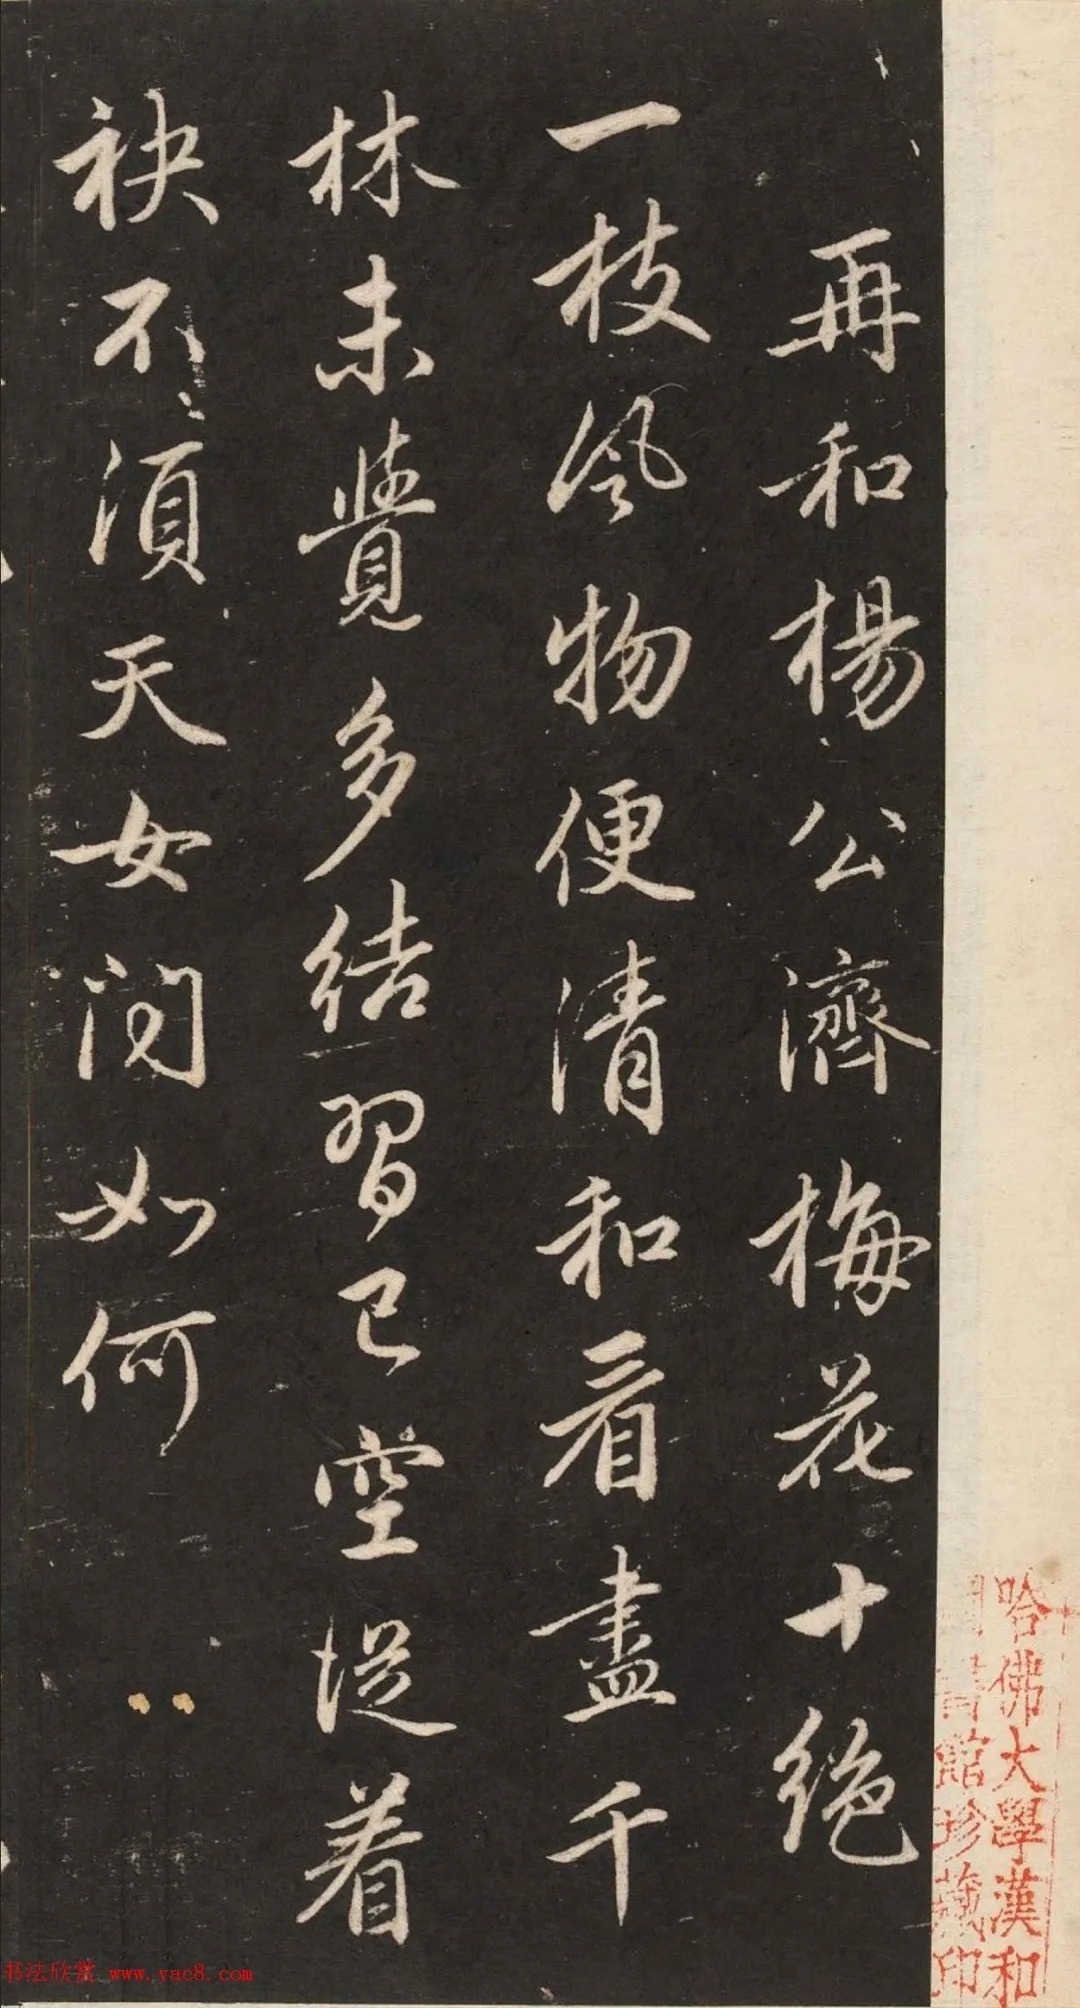 再和楊公濟梅花十絕
一枝風物便清和看盡千
林未覺多結習已空從着
袂不須天女問如何
哈佛大學漢和
圖書館珍藏印
书法欣赏 www.yac8.com